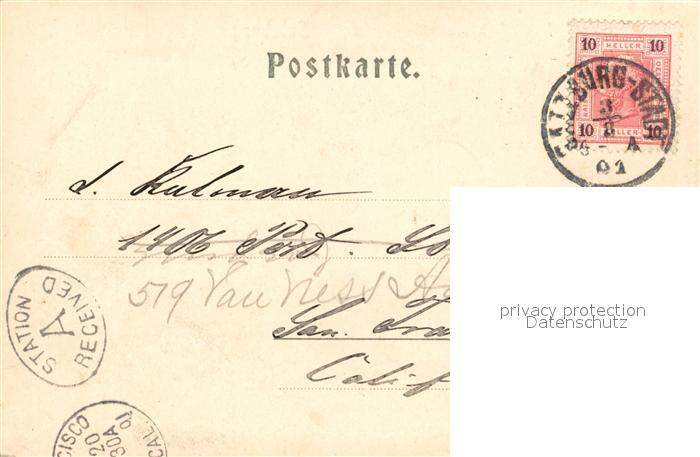 Postkarte.
10 HELLER 10
10 HELLER 10
SALZBURG-STADT
3
8
A
01
1406 Post. St
519 Van Ness A
San. Fra
Calif
STATION A RECEIVED
CISCO
CAL.
20
30A
01
privacy protection
Datenschutz